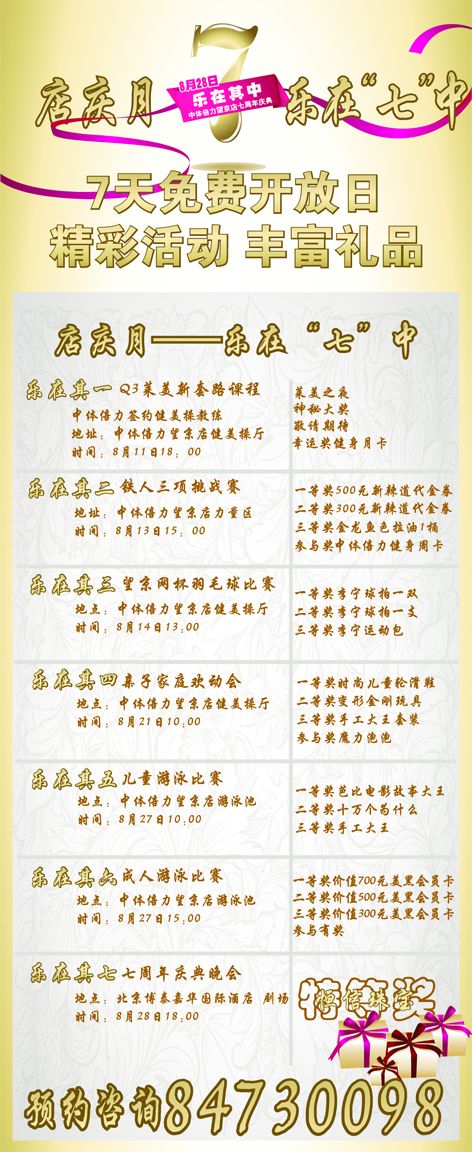 店庆月 7 乐在“七”中
8月28日
乐在其中
中体倍力望京店七周年庆典
7天免费开放日
精彩活动 丰富礼品
店庆月——乐在“七”中
乐在其一 Q3莱美新套路课程
中体倍力签约健美操教练
地址：中体倍力望京店健美操厅
时间：8月11日18：00
莱美之夜
神秘大奖
敬请期待
幸运奖健身月卡
乐在其二 铁人三项挑战赛
地址：中体倍力望京店力量区
时间：8月13日15：00
一等奖500元新辣道代金券
二等奖300元新辣道代金券
三等奖金龙鱼色拉油1桶
参与奖中体倍力健身周卡
乐在其三 望京网杯羽毛球比赛
地点：中体倍力望京店健美操厅
时间：8月14日13:00
一等奖李宁球拍一双
二等奖李宁球拍一支
三等奖李宁运动包
乐在其四 亲子家庭欢动会
地点：中体倍力望京店健美操厅
时间：8月21日10:00
一等奖时尚儿童轮滑鞋
二等奖变形金刚玩具
三等奖手工大王套装
参与奖魔力泡泡
乐在其五 儿童游泳比赛
地点：中体倍力望京店游泳池
时间：8月27日10:00
一等奖芭比电影故事大王
二等奖十万个为什么
三等奖手工大王
乐在其六 成人游泳比赛
地点：中体倍力望京店游泳池
时间：8月27日15:00
一等奖价值700元美黑会员卡
二等奖价值500元美黑会员卡
三等奖价值300元美黑会员卡
参与有奖
乐在其七 七周年庆典晚会
地点：北京博泰嘉华国际酒店 剧场
时间：8月28日18:00
特等奖
恒信珠宝
预约咨询84730098